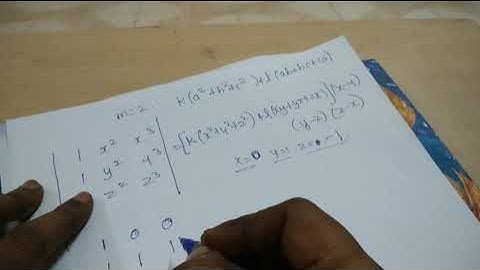 m=2. k(a²+b²+c²)+l(ab+bc+ca)
| 1 x² x³ |
| 1 y² y³ | =[k(x²+y²+z²)+l(xy+yz+zx)](x-y)
| 1 z² z³ | (y-z)(z-x)
x=0 y=1 z=-1
1 0 0
1 1 1